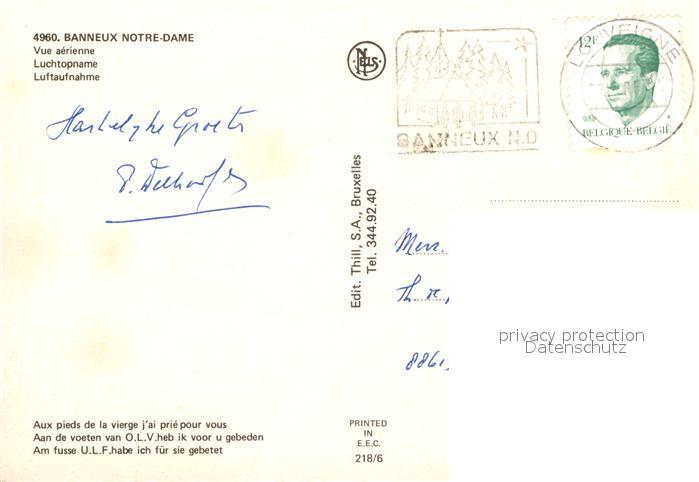 4960. BANNEUX NOTRE-DAME
Vue aérienne
Luchtopname
Luftaufnahme
NELS
BANNEUX N.D
LOUVEIGNE
12F
BELGIQUE-BELGIË
Hartelijke Groeten
Edit. Thill, S.A., Bruxelles
Tel. 344.92.40
Mevr.
886
privacy protection
Datenschutz
Aux pieds de la vierge j'ai prié pour vous
Aan de voeten van O.L.V. heb ik voor u gebeden
Am fusse U.L.F. habe ich für sie gebetet
PRINTED
IN
E.E.C.
218/6